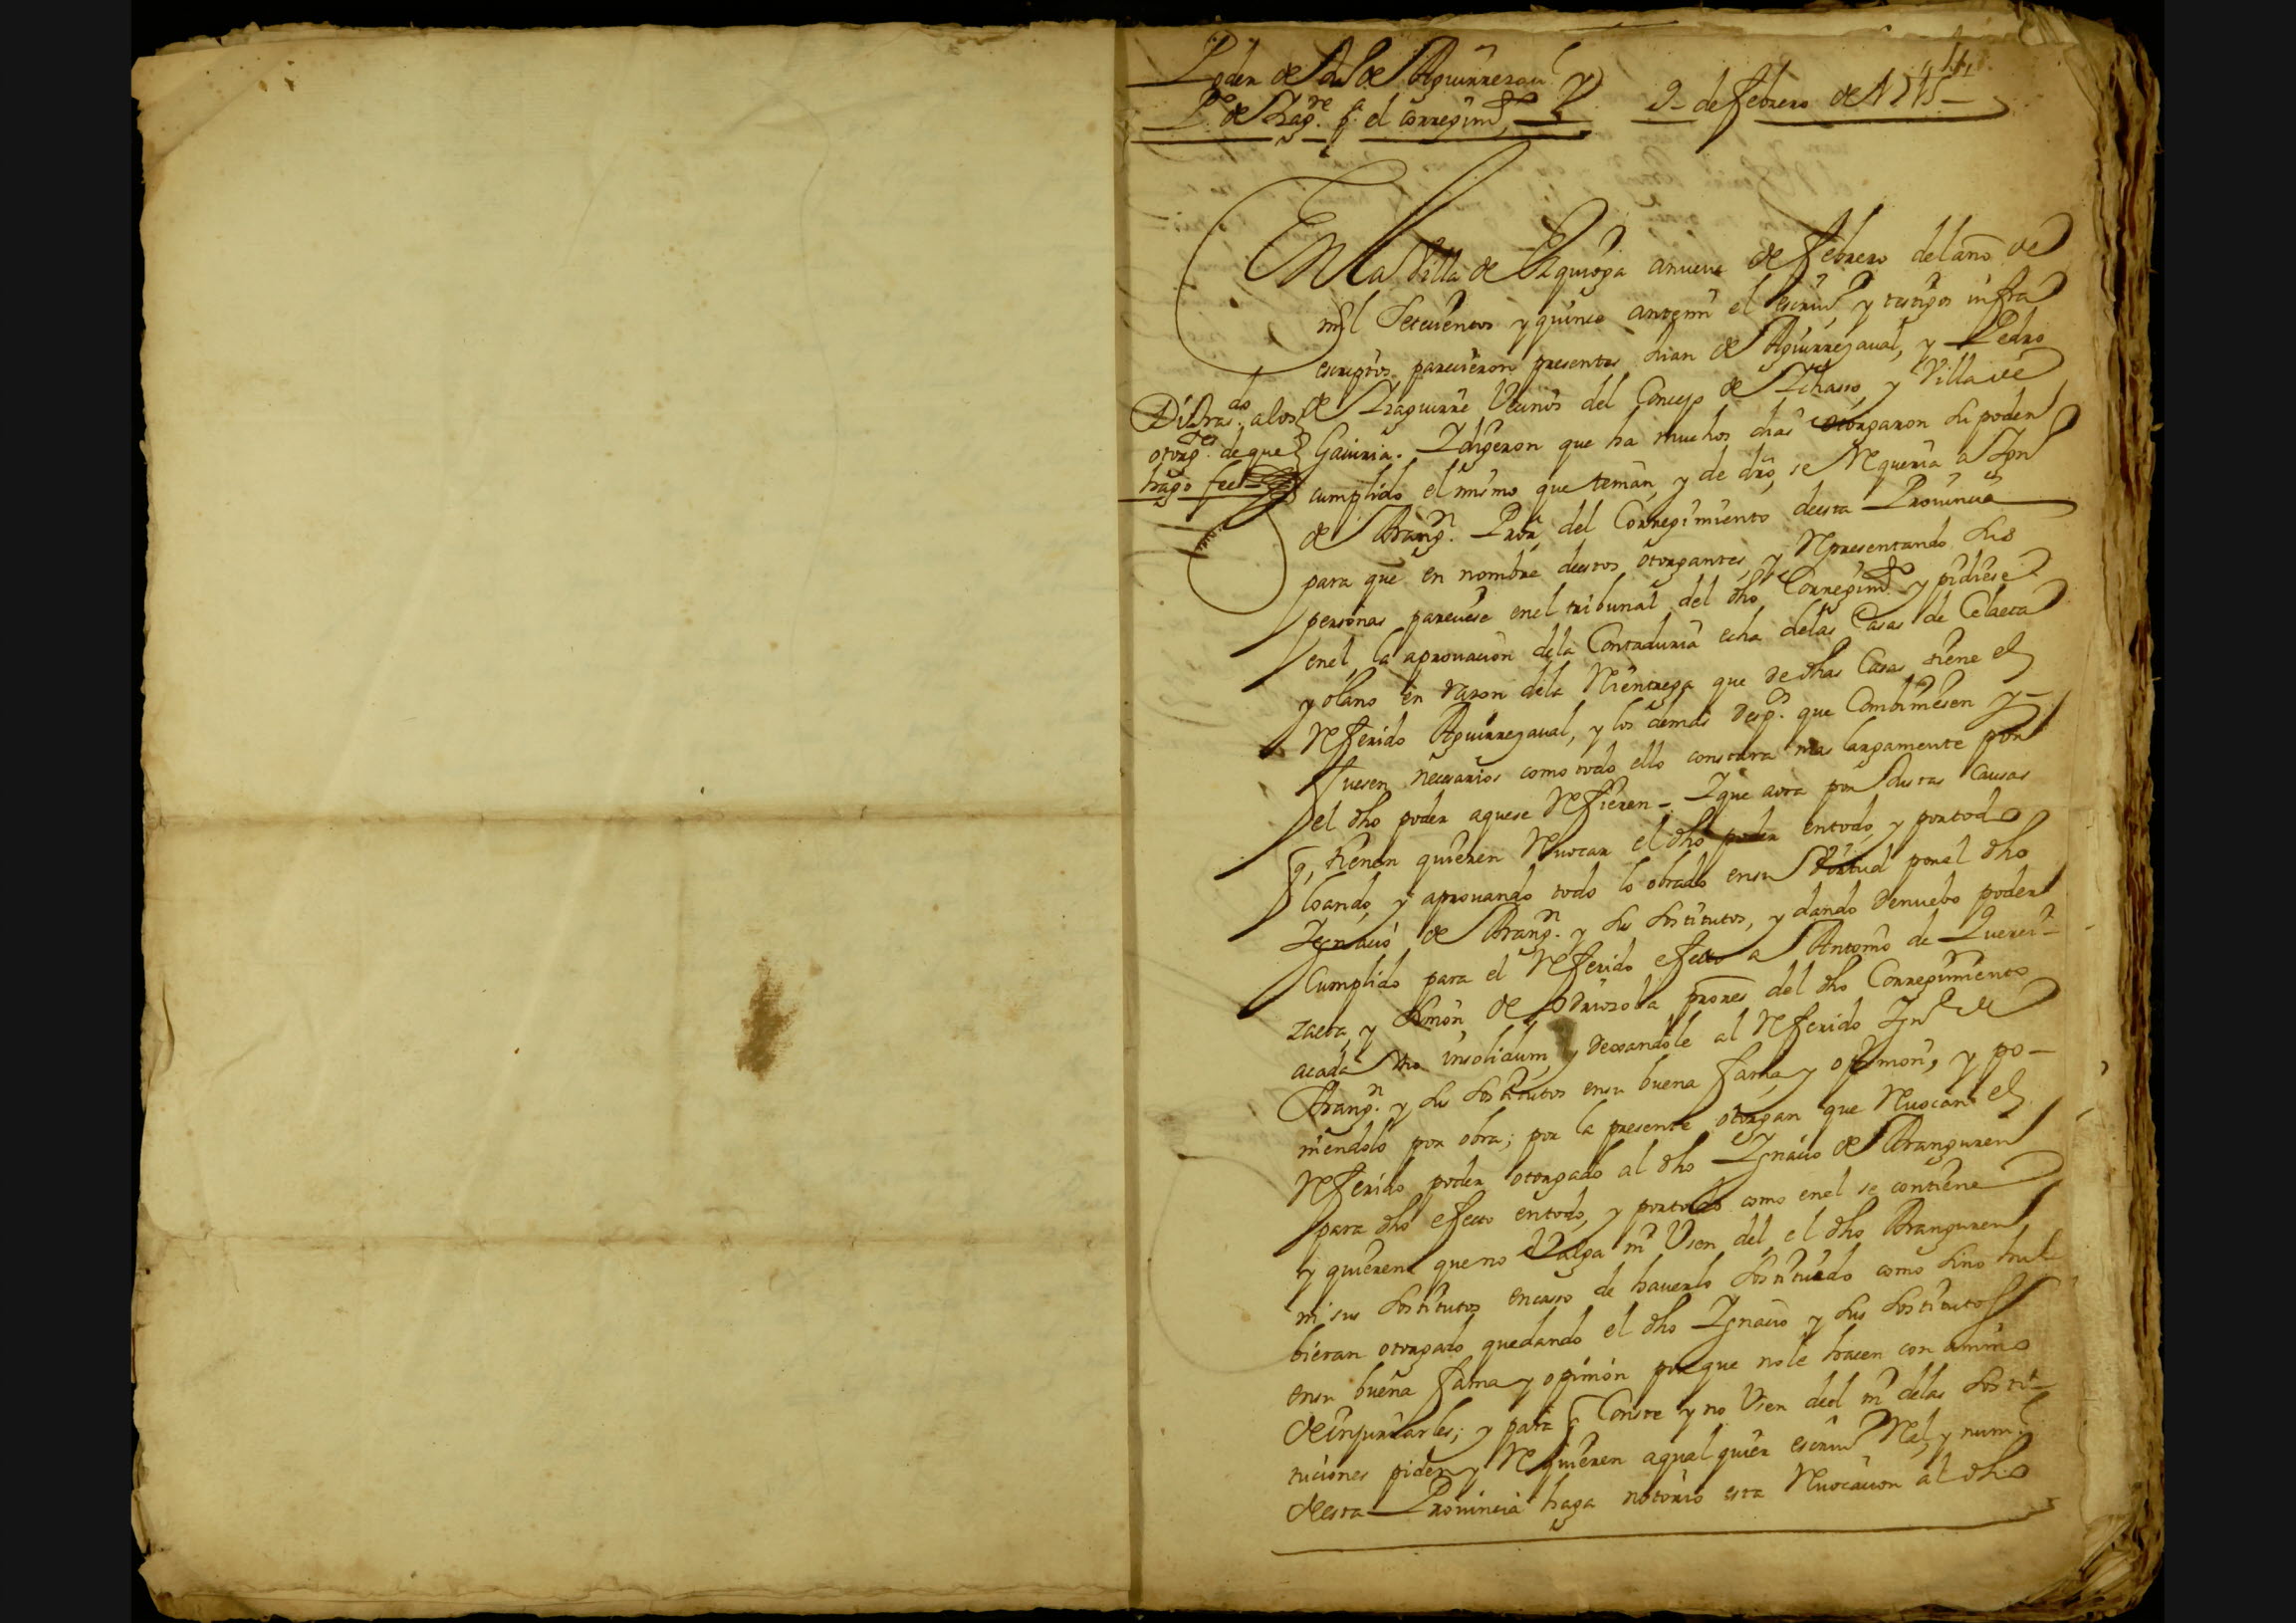 Poder de
P.º de Yzag.re p.a el corregim.to
9 de febrero de 1715
En la Villa de Ezquioga anueve de febrero del año de
mil Setecientos y quince antemi el escriu.º y testigos infra
escriptos parecieron presentes Juan de Aguirrezaual, y Pedro
de Yzaguirre Vecinos del Concejo de Ychasso, y Villa de
Gauiria. Y digeron que ha muchos dias otorgaron su poder
cumplido el mismo que tenian, y de dro, se requeria a Ign.º
de Arang.n Pror del Corregimiento desta Prouincia
para que en nombre destos otorgantes, y representando sus
personas pareciese enel tribunal del dho Corregim.to y pidiese
enel, la aprouacion dela Contaduria echa delas Casas de Celaeta
y olano en razon dela reentrega que de dhas Casas tiene el
referido Aguirrezaual, y los demas desp.os que Combiniesen y
fuesen necesarios como todo ello constara mas largamente por
el dho poder aquese refieren. Y que aora por Justas Causas
q, tienen quieren reuocar el dho poder entodo, y portodo
loando, y aprouando todo lo obrado ensu Virtud porel dho
Ygnacio de Arang.n y sus sostitutos, y dando denuebo poder
Cumplido para el referido efecto a Antonio de Querei-
zaeta, y Simon de Odriozola prores del dho Corregimiento
acada Vno insolidum, y dexandole al referido Ign.º de
Arang.n y sus sostitutos ensu buena fama y opinion, y po-
niendolo por obra; por la presente otorgan que reuocan el
referido poder otorgado al dho Ygnacio de Aranguren
para dho efecto entodo, y portodo como enel se contiene
y quieren que no Valga ni Vsen del, el dho Aranguren,
ni sus sostitutos encaso de hauerlo sostituido como sino hu-
bieran otorgado quedando el dho Ygnacio y sus sostitutos
ensu buena fama y opinion por que nole hacen con animo
deinjuriarles; y para q Conste y no Vsen del ni delas sosti-
tuciones piden y requieren aqualquier escriu.º rel y num.l
desta Prouincia haga notorio esta reuocacion al dho
Di tras.do alos
otorg.tes deque
hago fee